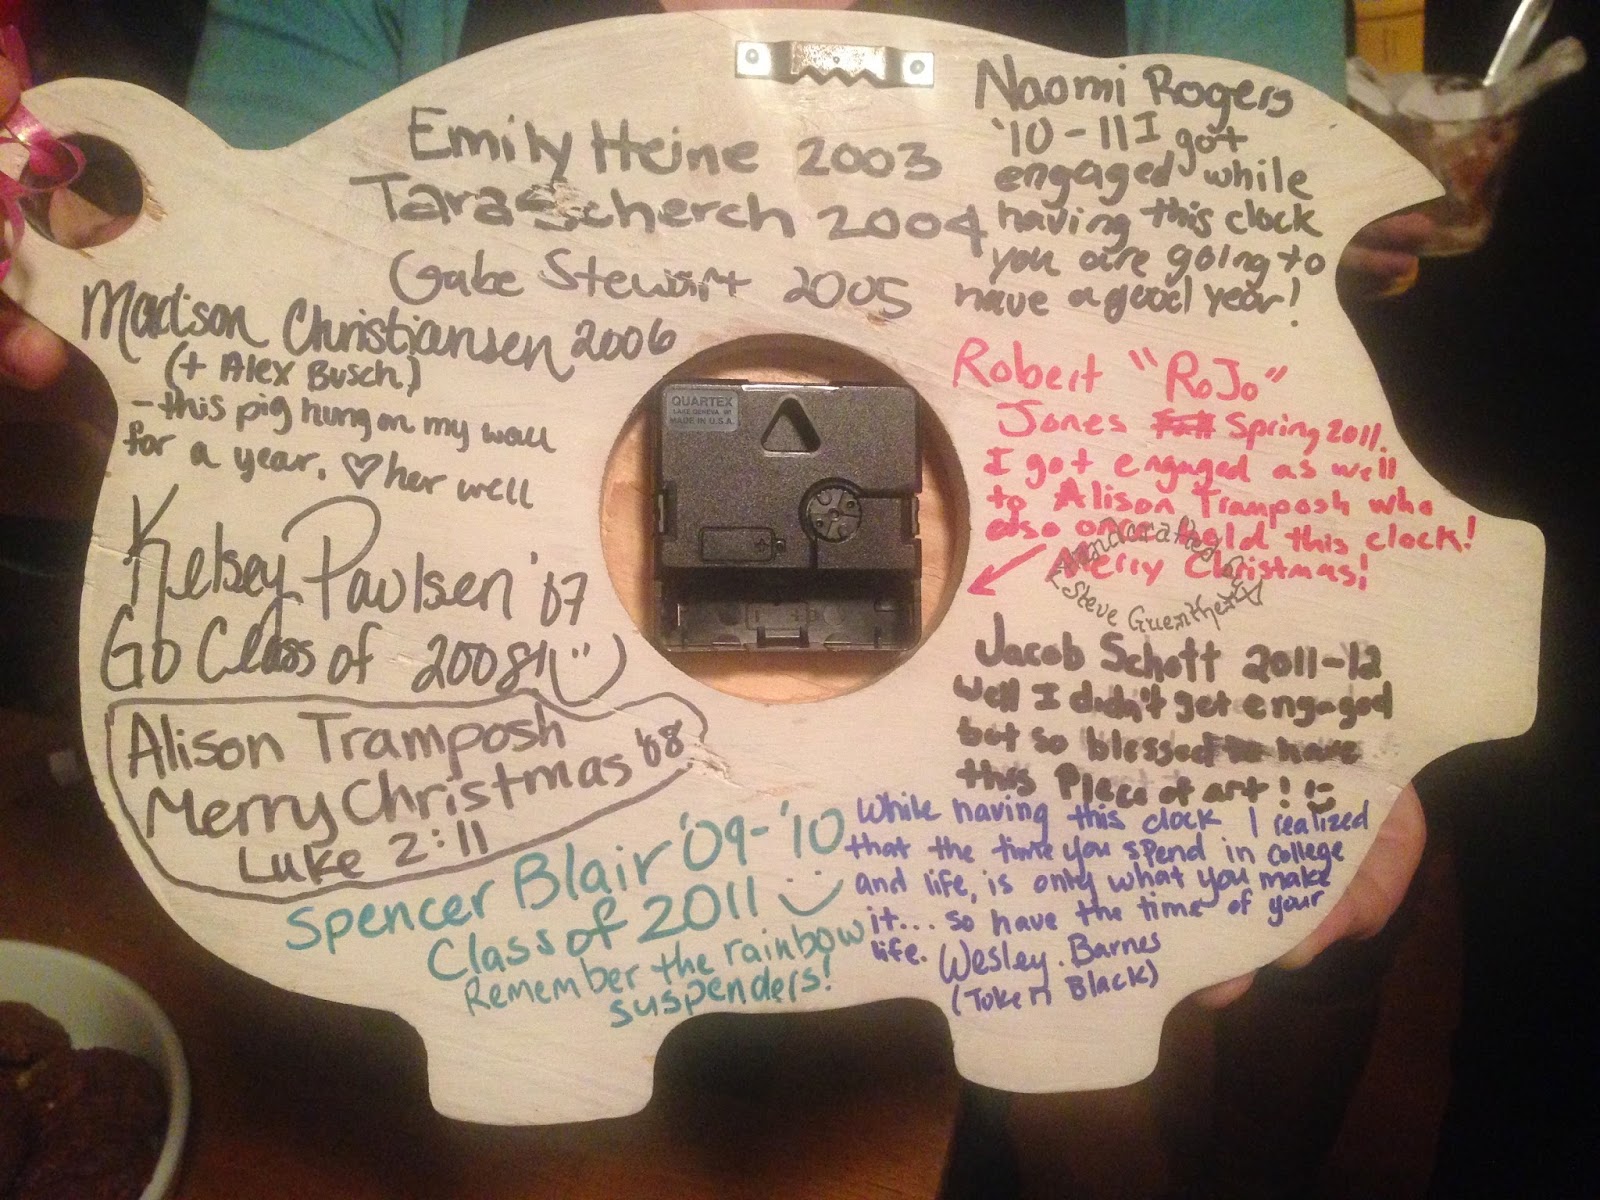 Emily Heine 2003
Tara Scherch 2004
Gabe Stewart 2005
Madison Christiansen 2006
(+ Alex Busch)
- this pig hung on my wall
for a year. ♡ her well
Kelsey Paulsen '07
Go Class of 2008!! :)
Alison Tramposh
Merry Christmas '08
Luke 2:11
Spencer Blair '09-'10
Class of 2011 :)
Remember the rainbow
suspenders!
QUARTEX
LAKE GENEVA, WI
MADE IN U.S.A.
+
Naomi Rogers
'10-11 I got
engaged while
having this clock
you are going to
have a good year!
Robert "RoJo"
Jones Fall Spring 2011.
I got engaged as well
to Alison Tramposh who
also once held this clock!
Merry Christmas!
Handcrafted By
Steve Guenther
Jacob Schott 2011-12
Well I didn't get engaged
but so blessed to have
this Piece of art! :)
While having this clock I realized
that the time you spend in college
and life, is only what you make
it... so have the time of your
life. Wesley Barnes
(Token Black)